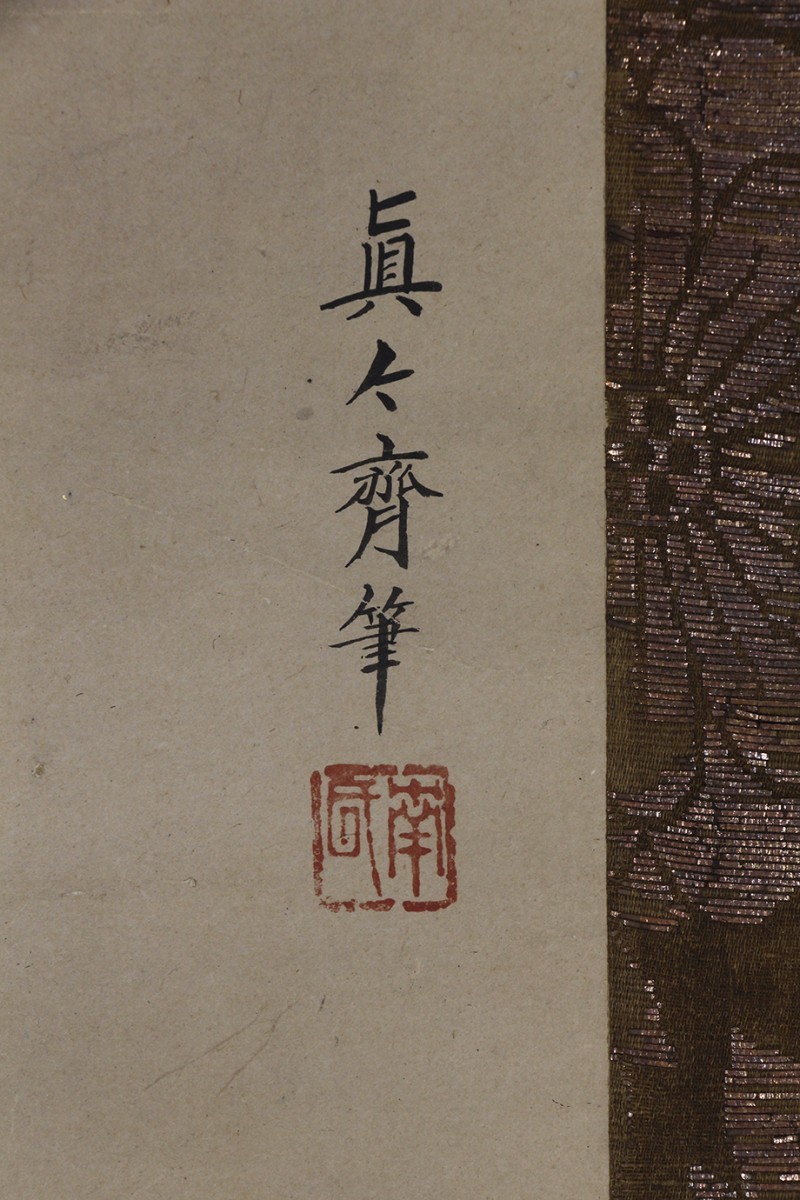 眞々齊筆
南